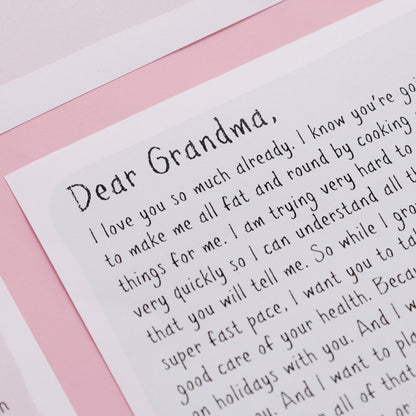 Dear Grandma,
I love you so much already. I know you're
to make me all fat and round by cooking
things for me. I am trying very hard to
very quickly so I can understand all
that you will tell me. So while I
super fast pace, I want you to
good care of your health.
on holidays with you. And I
you. And I want to
all of that
or